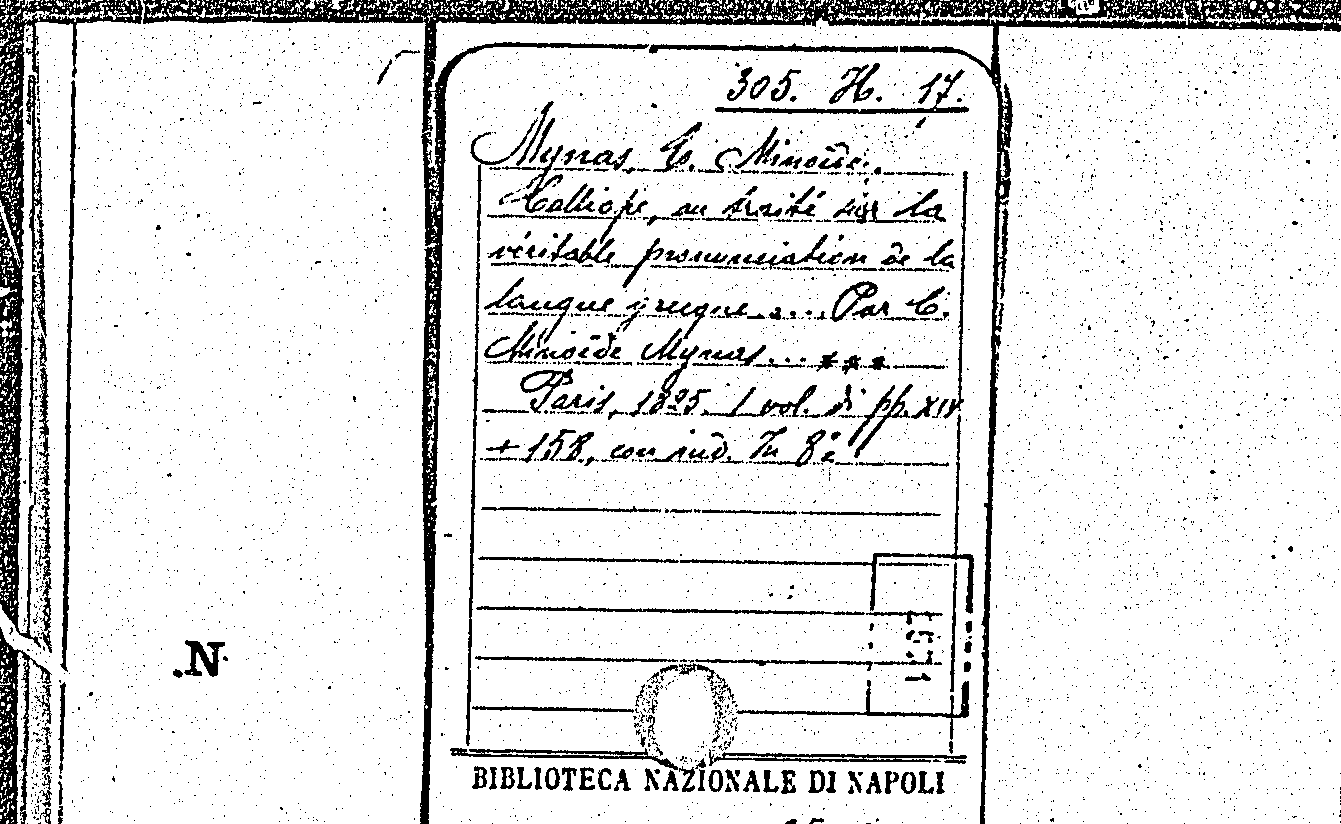 305. H. 17.
Mynas, C. Minoïde.
Calliope, ou traité sur la
véritable prononciation de la
langue grecque .... Par C.
Minoïde Mynas... ***
Paris, 1825. 1 vol. di pp. XIV
+ 158, con ind. In 8º
.N.
BIBLIOTECA NAZIONALE DI NAPOLI